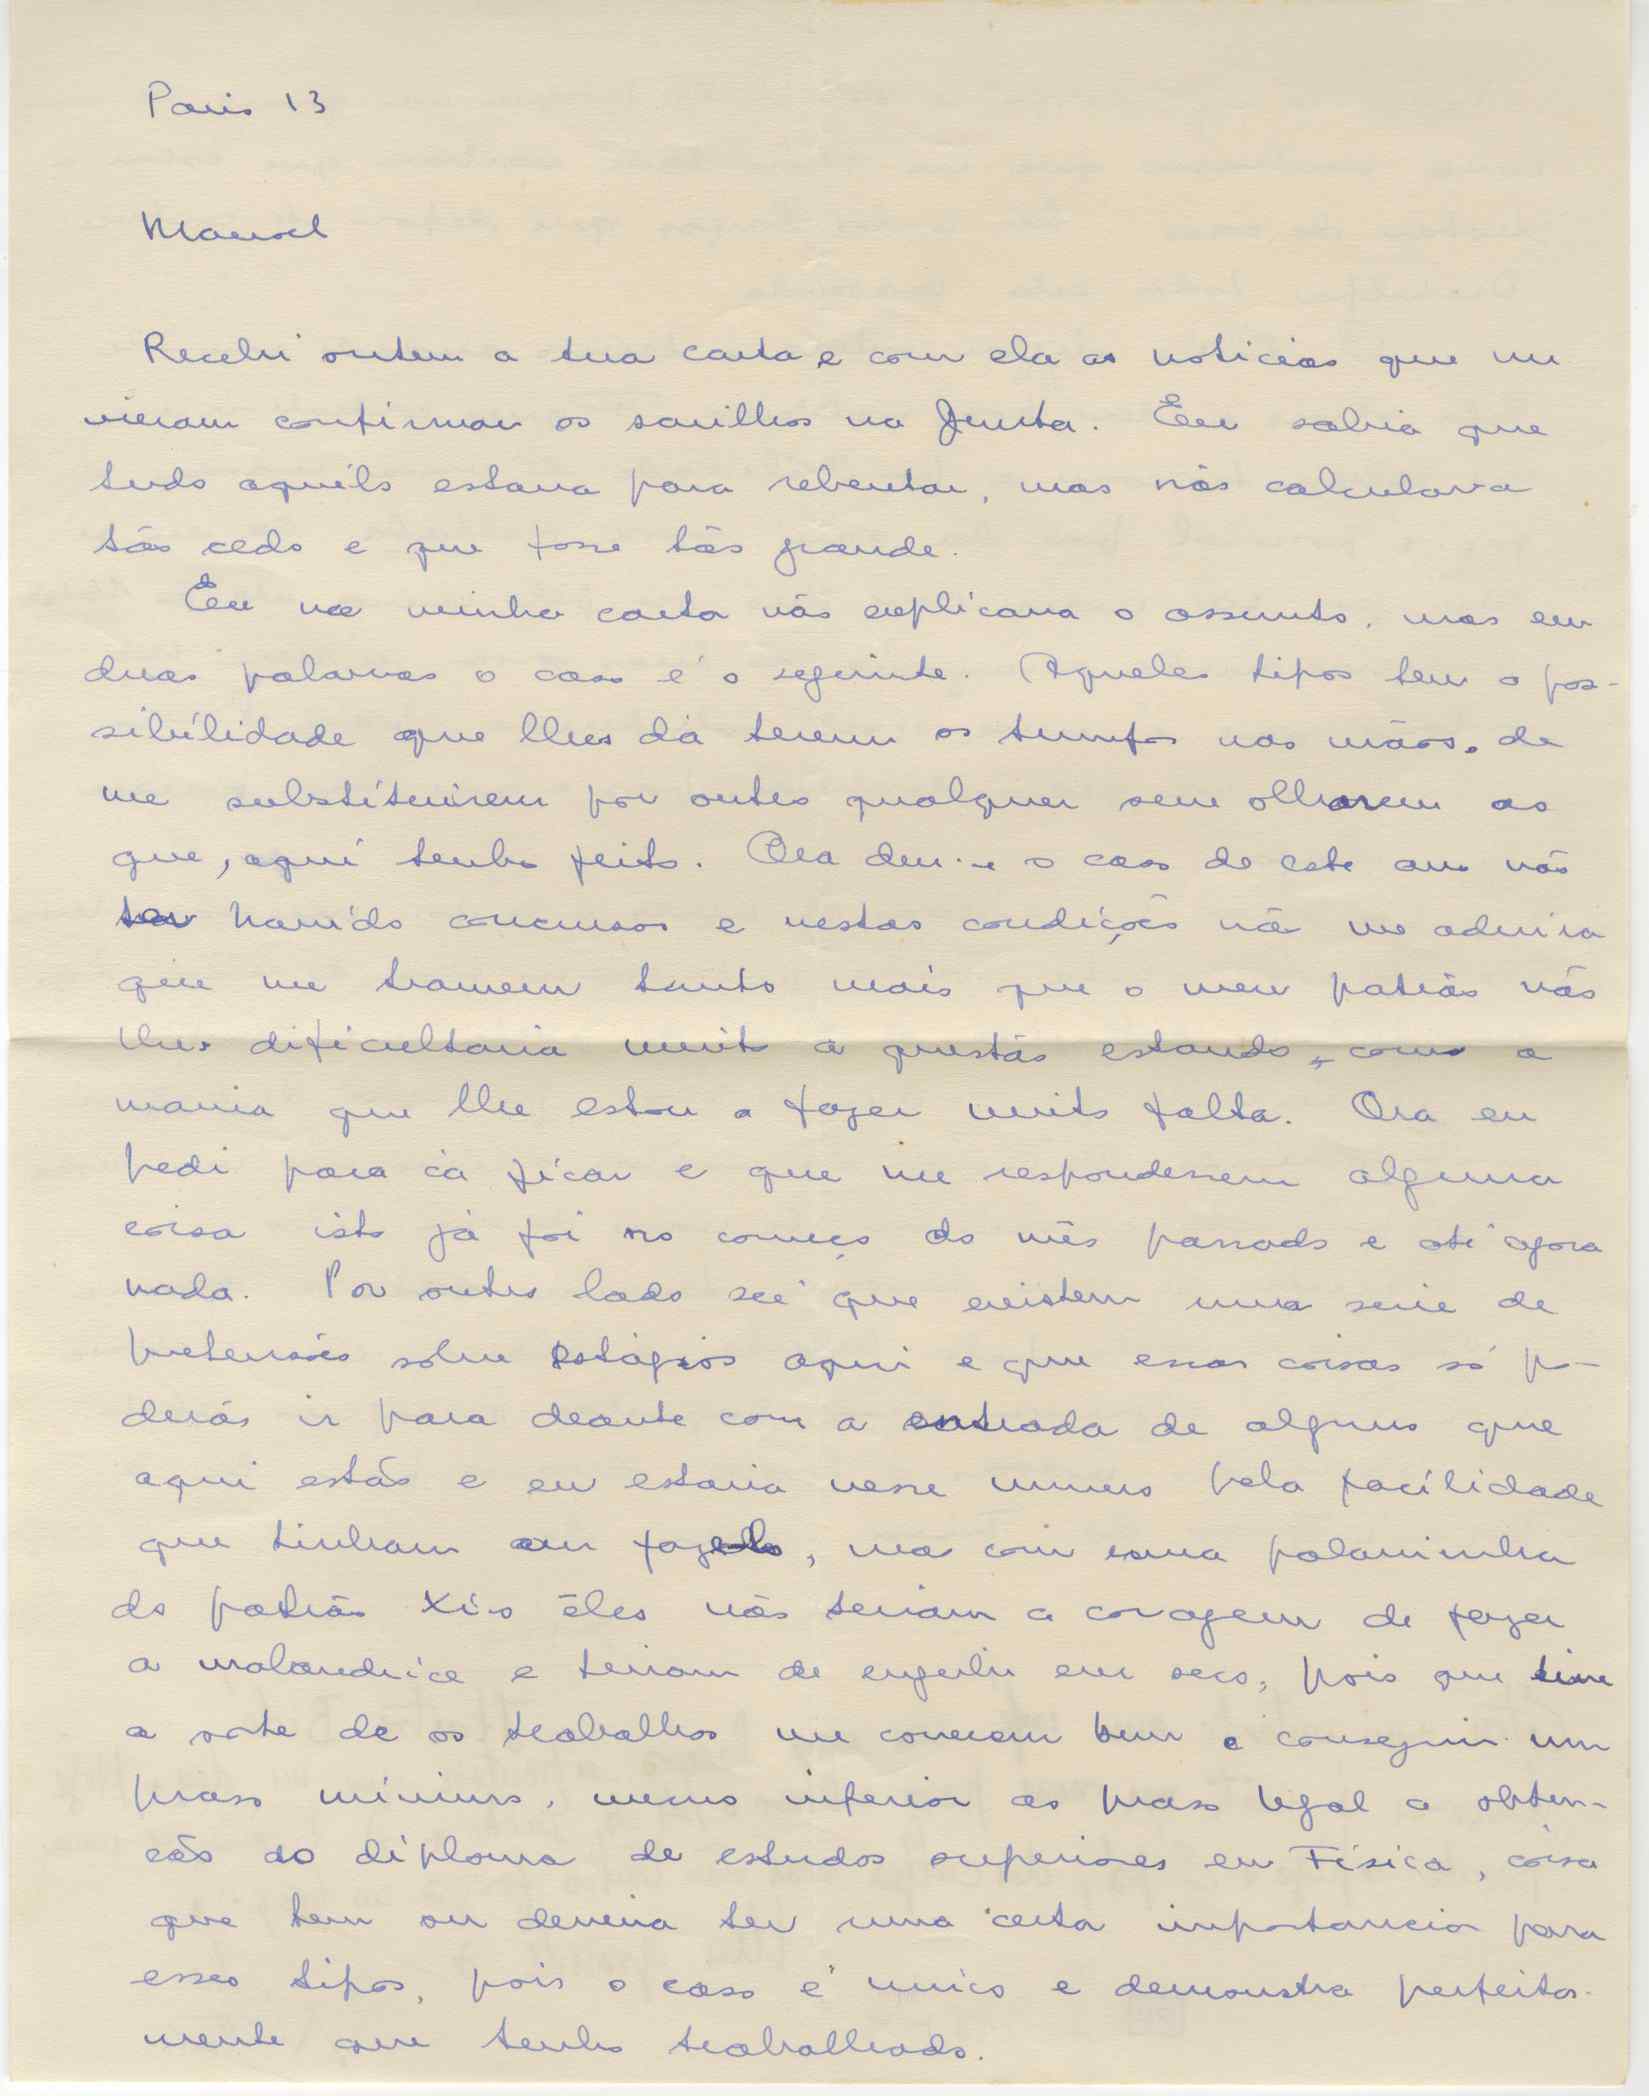 Paris 13
Manoel
Recebi ontem a tua carta e com ela as noticias que me
vieram confirmar os sarilhos na Junta. Eu sabia que
tudo aquilo estava para rebentar, mas não calculava
tão cedo e que fosse tão grande.
Eu na minha carta não explicava o assunto, mas em
duas palavras o caso é o seguinte. Aqueles tipos tem a pos-
sibilidade que lhes dá terem os trunfos nas mãos, de
me substituirem por outro qualquer sem olharem ao
que, aqui tenho feito. Ora deu-se o caso de este ano não
ter havido concursos e nestas condições não me admira
que me tramem tanto mais que o meu patrão não
lhes dificultaria muito a questão estando, com a
mania que lhe estou a fazer muita falta. Ora eu
pedi para cá ficar e que me respondessem alguma
coisa isto já foi no começo do mês passado e até agora
nada. Por outro lado sei que existem uma serie de
pretensões sobre estágios aqui e que essas coisas só po-
derão ir para deante com a entrada de alguns que
aqui estão e eu estaria nesse numero pela facilidade
que tinham em fazelo, mas com uma palavrinha
do patrão Xis êles não teriam a coragem de fazer
a malandrice e teriam de engulir em seco, pois que tive
a sorte de os trabalhos me correrem bem e conseguir um
praso minimo, mesmo inferior ao praso legal a obten-
cão do diploma de estudos superiores em Física, coisa
que tem ou deveria ter uma certa importancia para
esses tipos, pois o caso é unico e demonstra perfeita-
mente que tenho trabalhado.